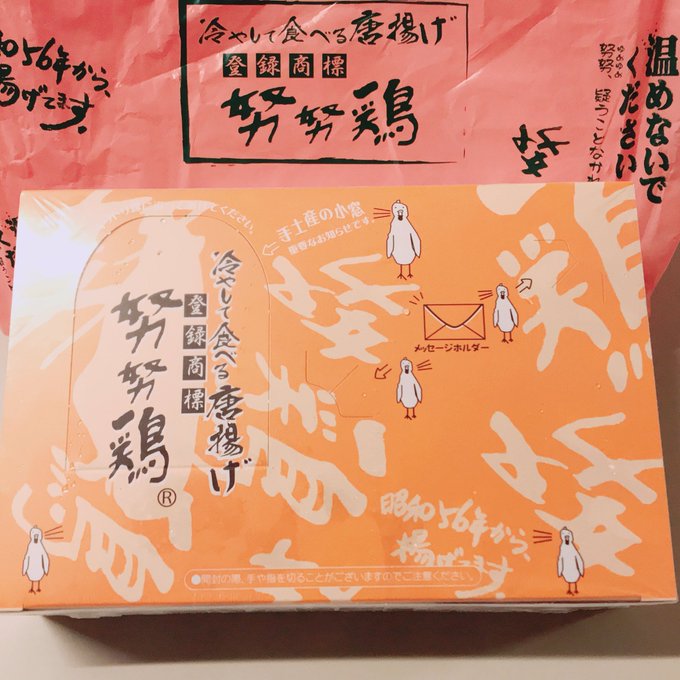 冷やして食べる唐揚げ
登録商標
努努鶏
温めないで
ください
ゆめゆめ
努努、疑うことなかれ
昭和56年から、
揚げてます。
手土産の小窓
重要なお知らせです。
冷やして食べる唐揚げ
登録商標
努努鶏®
メッセージホルダー
昭和56年から、
揚げてます。
●開封の際、手や指を切ることがございますのでご注意ください。